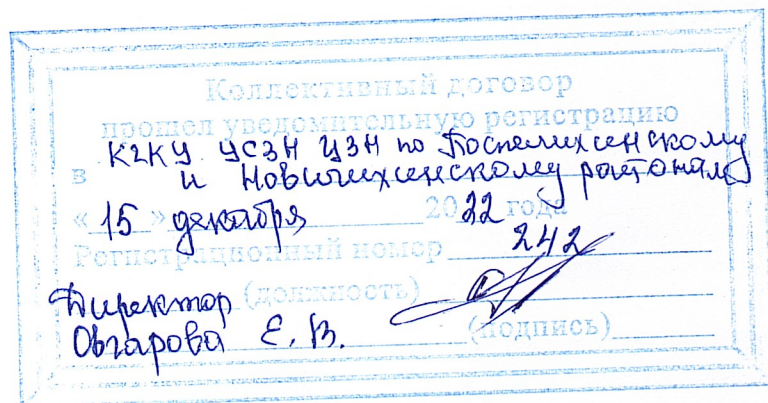 Коллективный договор
прошел уведомительную регистрацию
в КГКУ УСЗН УЗН по Поспелихинскому
и Новичихинскому районам
« 15 » декабря 2022 года
Регистрационный номер 242
Директор (должность)
Овчарова Е. В. (подпись)